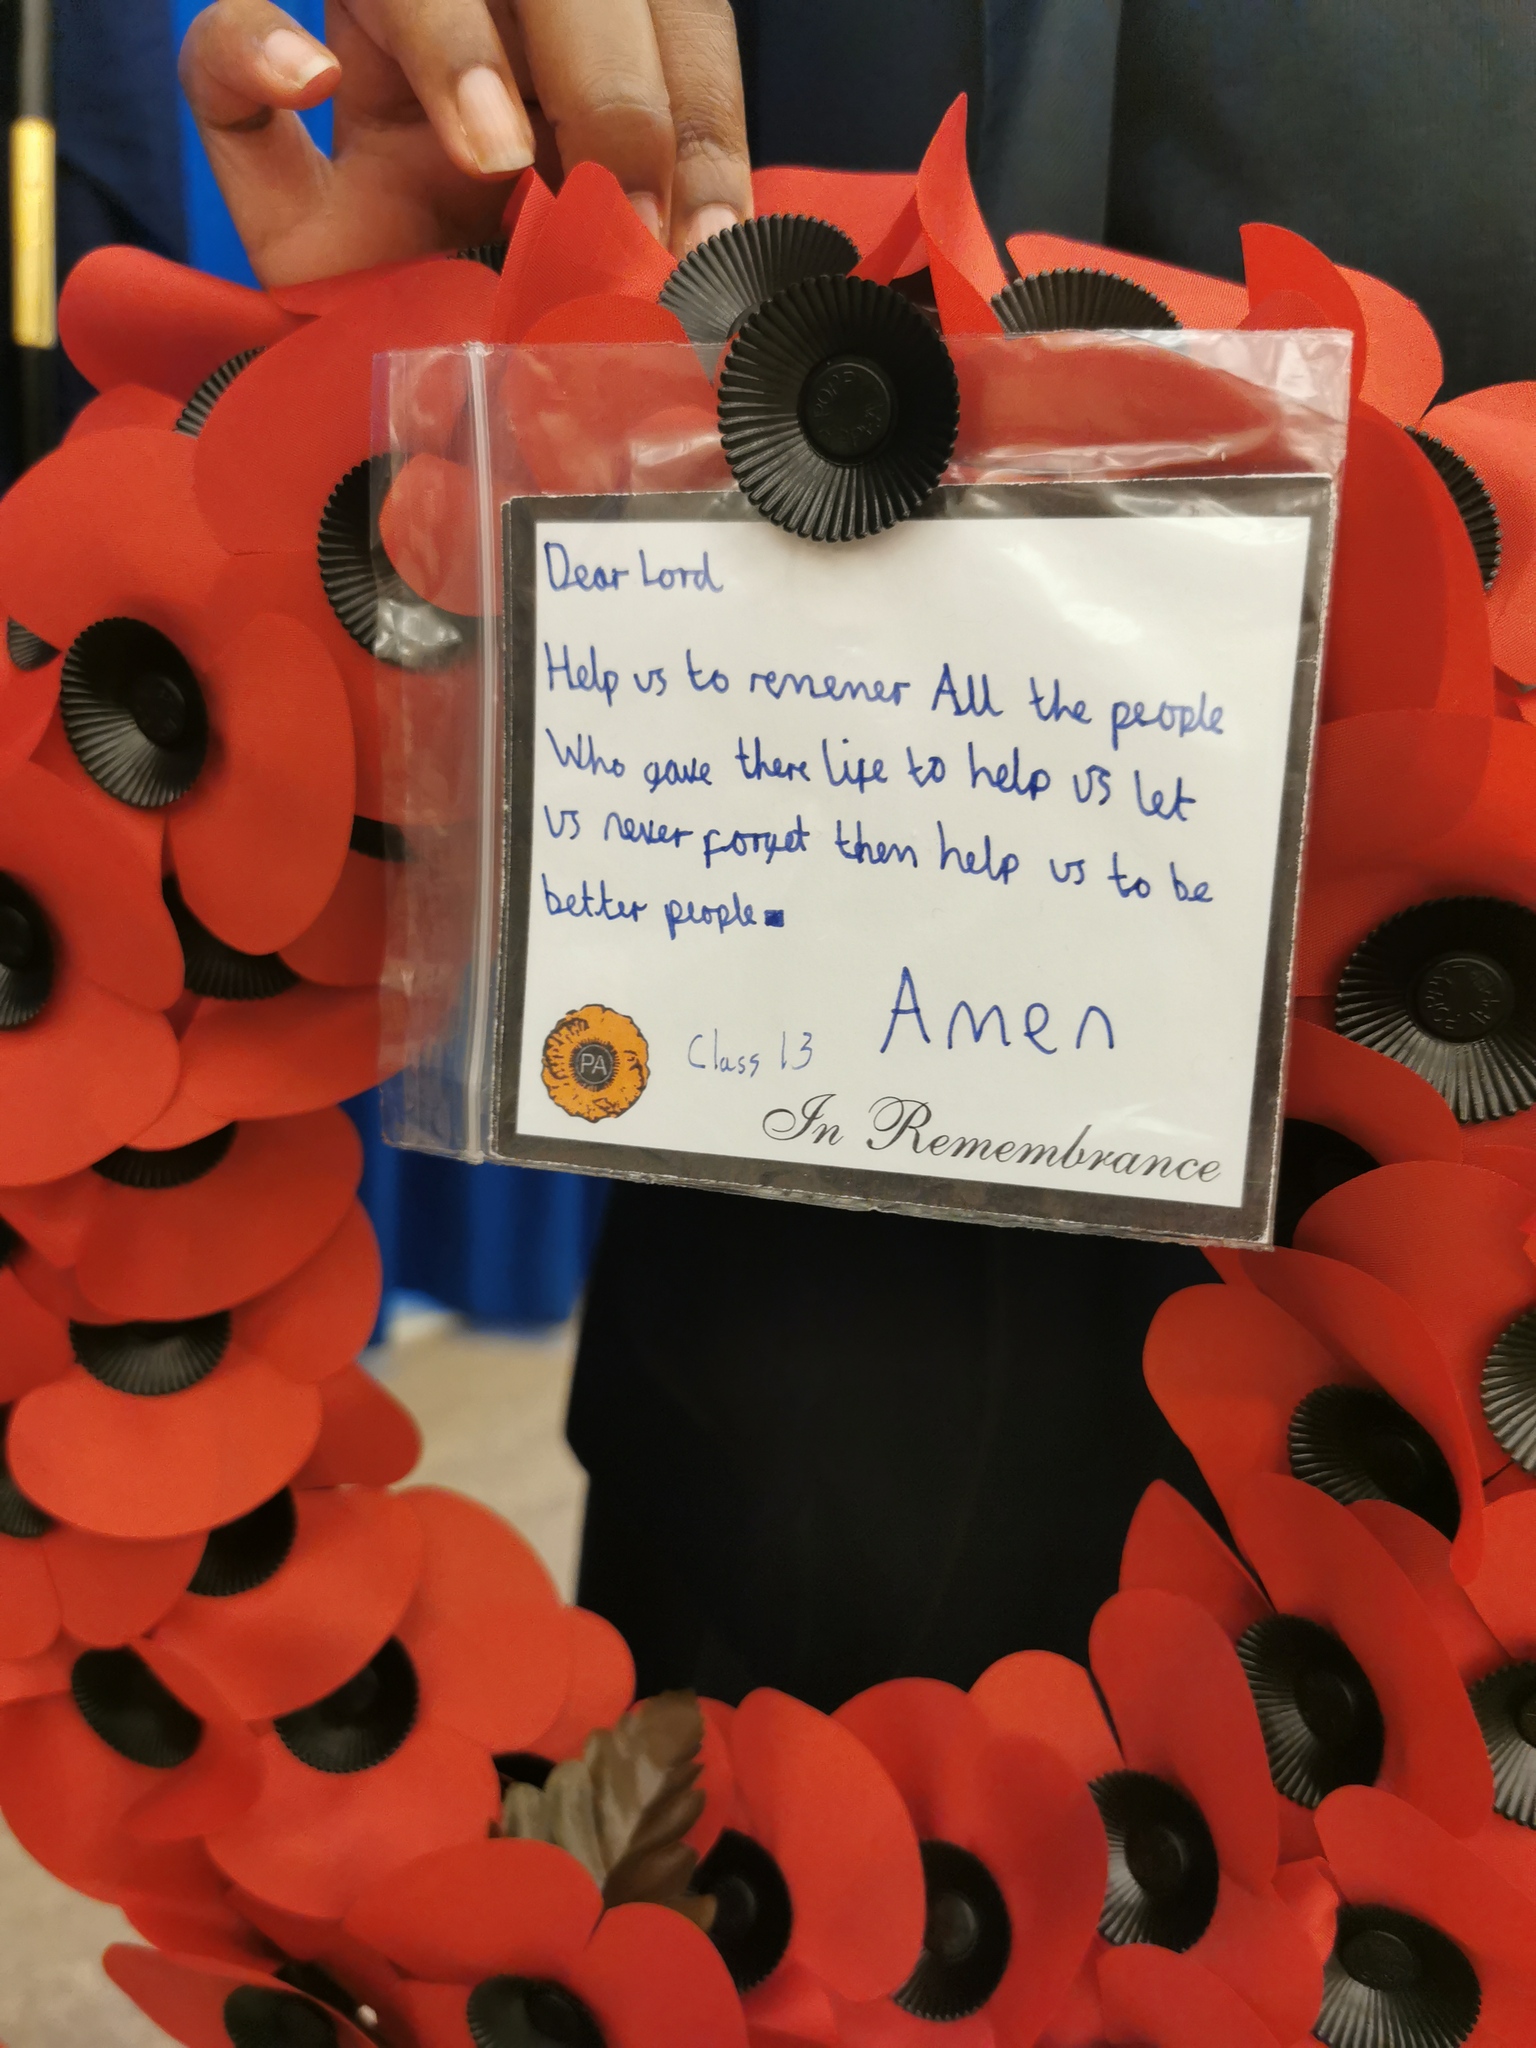 Dear Lord
Help us to remener All the people
Who gave there life to help us let
us never forget them help us to be
better people
Amen
Class 13
PA
In Remembrance